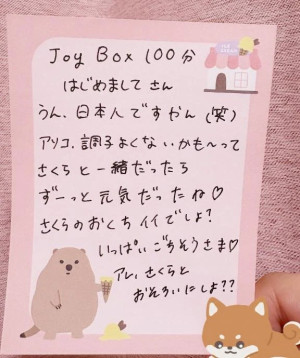 Joy Box 100分
はじめまして さん
うん、日本人ですやん(笑)
アソコ、調子よくないかも〜って
さくらと一緒だったら
ずーっと元気だったね♡
さくらのおくちイイでしょ?
いっぱいごちそうさま♡
アレ、さくらと
おそろいにしよ??